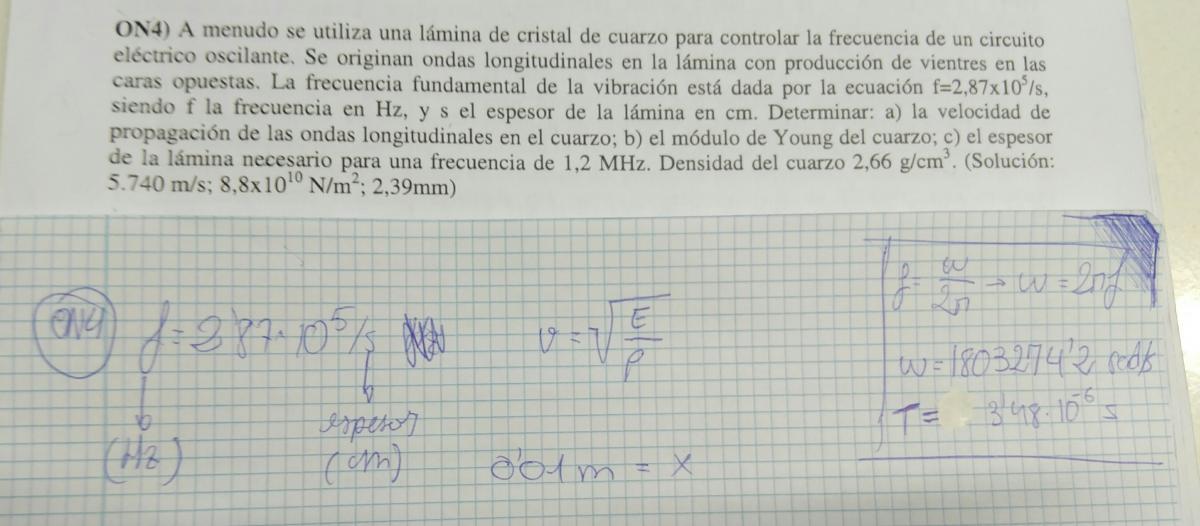 ON4) A menudo se utiliza una lámina de cristal de cuarzo para controlar la frecuencia de un circuito
eléctrico oscilante. Se originan ondas longitudinales en la lámina con producción de vientres en las
caras opuestas. La frecuencia fundamental de la vibración está dada por la ecuación f=2,87x10⁵/s,
siendo f la frecuencia en Hz, y s el espesor de la lámina en cm. Determinar: a) la velocidad de
propagación de las ondas longitudinales en el cuarzo; b) el módulo de Young del cuarzo; c) el espesor
de la lámina necesario para una frecuencia de 1,2 MHz. Densidad del cuarzo 2,66 g/cm³. (Solución:
5.740 m/s; 8,8x10¹⁰ N/m²; 2,39mm)
ON4 f = 2'87·10⁵/s
v = √(E/ρ)
(Hz)
espesor
(cm)
0'01m = x
f = w/2π → w = 2πf
w = 1803274'2 rad/s
T = 3'48·10⁻⁶ s